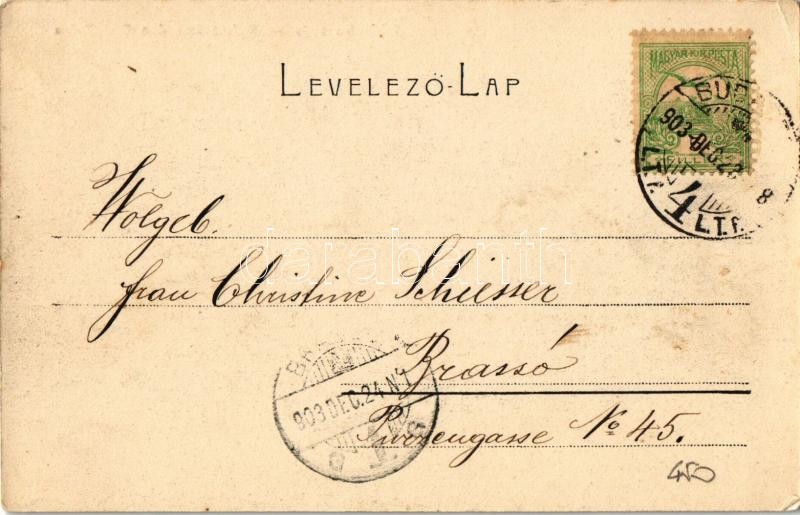 LEVELEZŐ-LAP
MAGYAR KIR. POSTA
BUD
903 DEC. 23
8
4
L.T.f.
Wolgeb.
darabanth
frau Christine Schiesser
Brassó
903 DEC. 24 N 1
Purzengasse No 45.
450